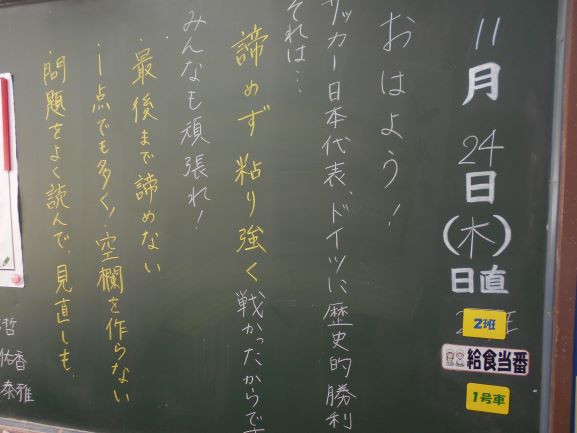 11月24日(木)
日直
2班
給食当番
1号車
おはよう!
サッカー日本代表、ドイツに歴史的勝利
それは…
諦めず粘り強く戦かったからで
みんなも頑張れ!
・最後まで諦めない
・1点でも多く!空欄を作らない
・問題をよく読んで、見直しも。
哲
佑香
泰雅